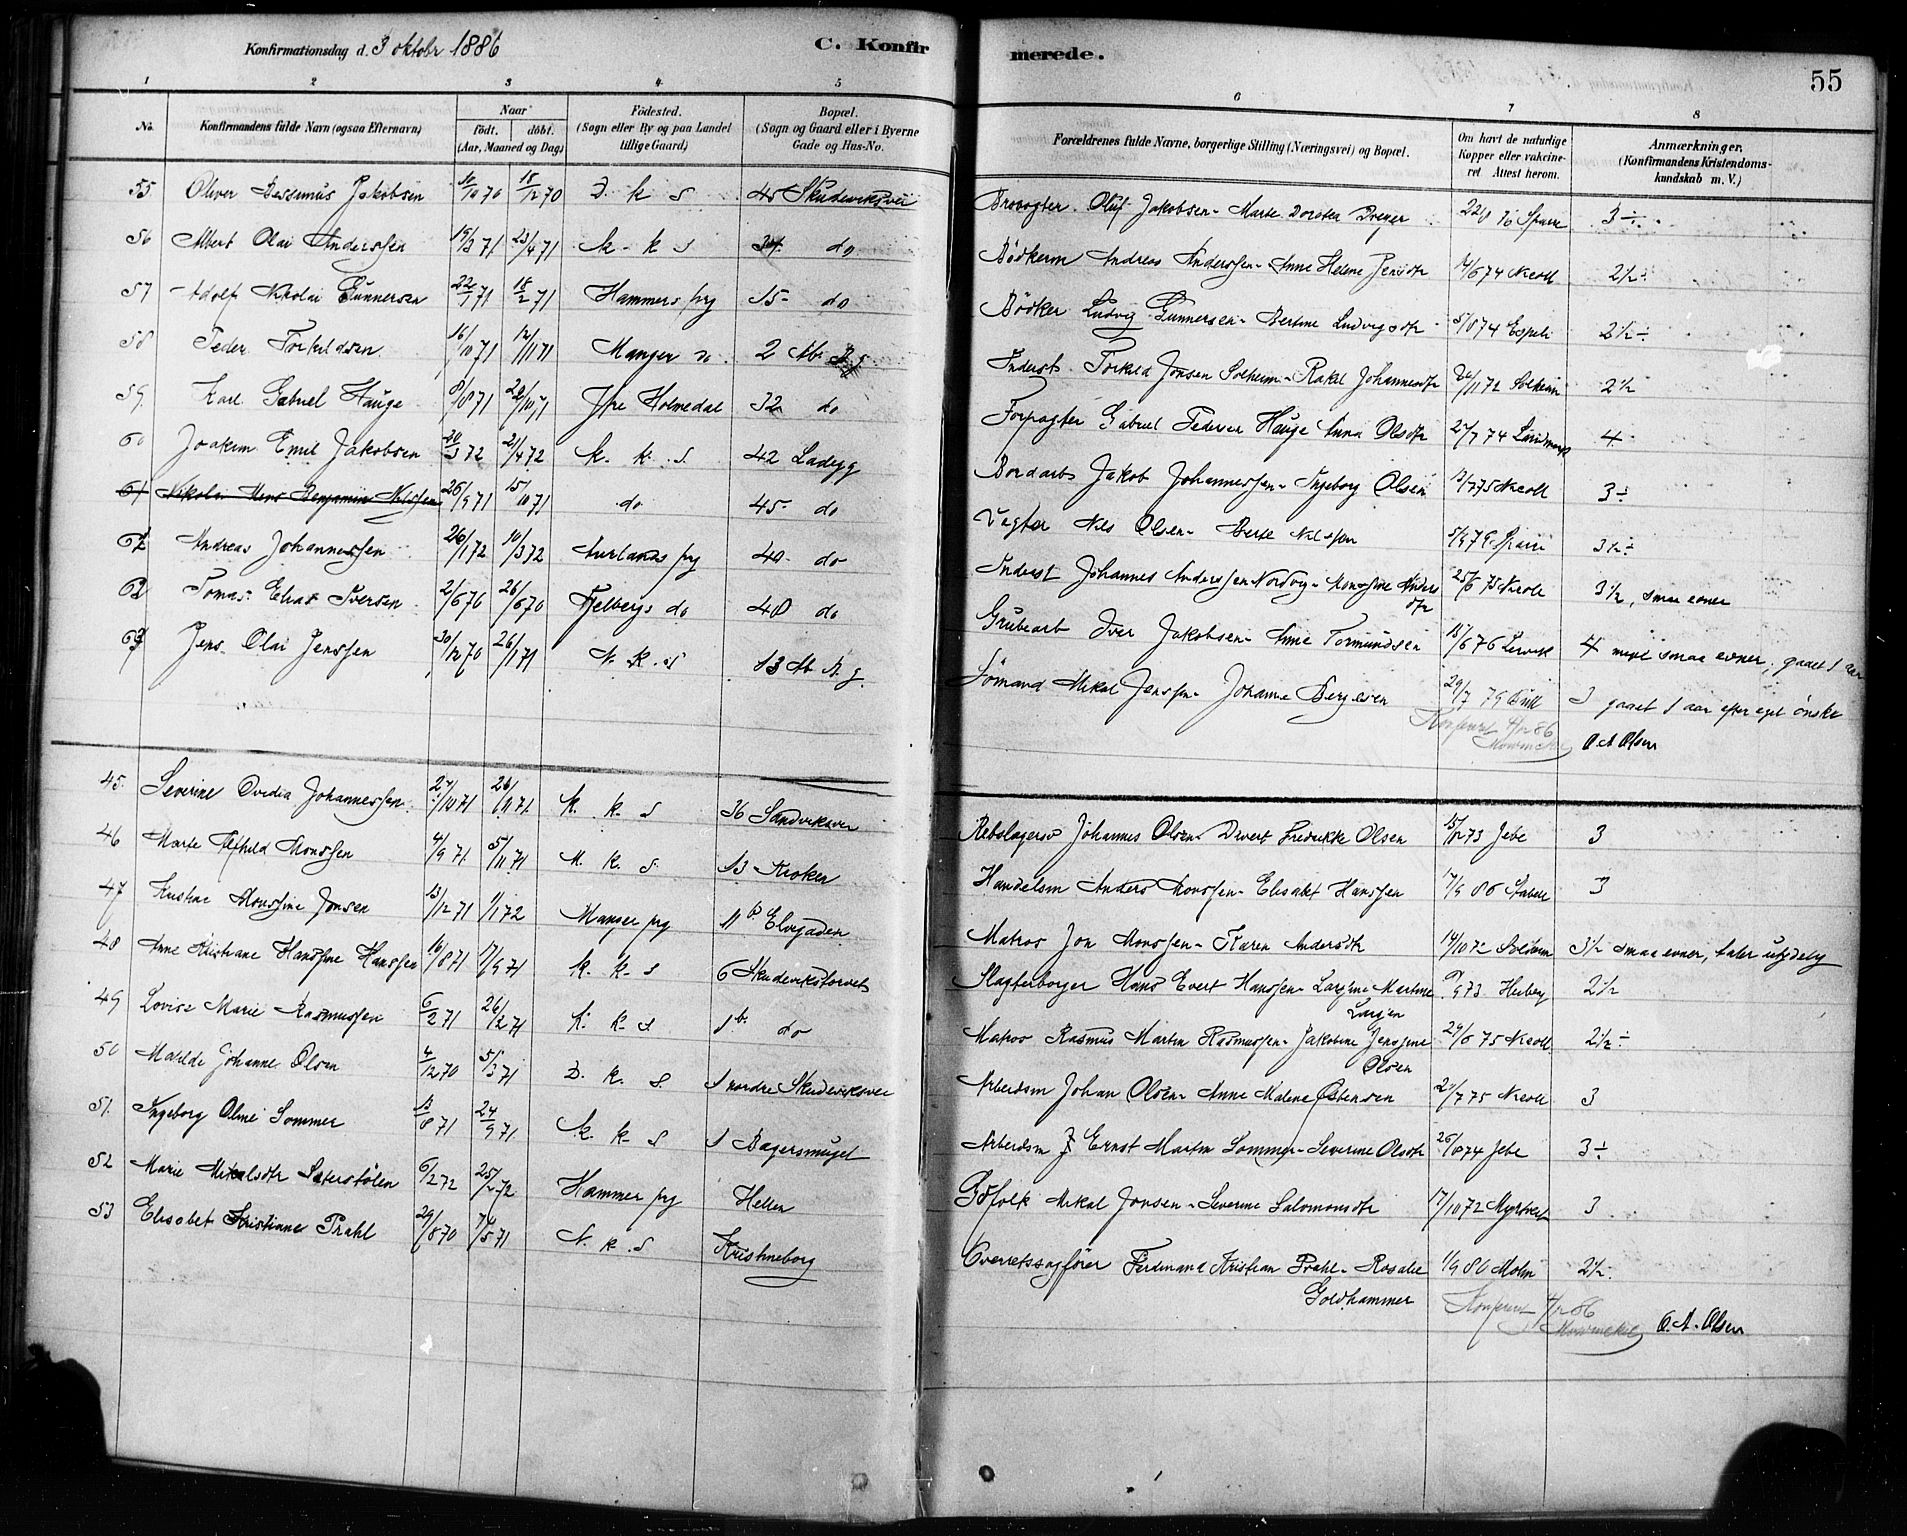 Konfirmationsdag d. 3 oktobr 1886
C. Konfirmerede.
55
1 2 3 4 5 6 7 8
No.
Konfirmandens fulde Navn (ogsaa Efternavn)
Naar
født. døbt.
(Aar, Maaned og Dag)
Fødested.
(Sogn eller By og paa Landet
tillige Gaard)
Bopæl.
(Sogn og Gaard eller i Byerne
Gade og Hus-No.
Forældrenes fulde Navne, borgerlige Stilling (Næringsvei) og Bopæl.
Om havt de naturlige
Kopper eller vakcine-
ret Attest herom.
Anmærkninger.
(Konfirmandens Kristendoms-
kundskab m. V.)
55 Oliver Jakobsen 18/12 70 D k S 45 Oluf Jakobsen - Marte Dorotea Dreyer 3 ÷
56 Albert Olai Anderssen 19/3 71 23/4 71 K. k S do Bödkerm Andreas Anderssen - Anne Helene 4/6 74 Nicoll 2½ ÷
57 Adolf Nikolai Gunnersen 22/1 71 18/2 71 Hammers prg 15 do Bödker Ludvig Gunnersen - Bertine Ludvigsdtr 5/8 74 2½ ÷
58 Peder Torkildsen 16/10 71 12/11 71 Manger do 2 Inderst Torkild Jonsen Solheim - Rakel Johannesdtr 11 72 Solheim 2½
59 Karl Gabriel Hauge 8/8 71 29/10 71 Ytre Holmedal 32 do Forpagter Gabriel Pedersen Hauge Anna Olsdtr 27/7 74 4
60 Joakim Emil Jakobsen 20/3 72 21/4 72 K. k. S 42 Ladegg Bordarb Jakob Johannessen - Ingeborg Olsen 7 75 Nicoll 3 ÷
61 Nikolai Mens Benjamin Nilssen 26/9 71 15/10 71 do 45 do Vagter Nils Olsen - Berte Nilssen 5/9 79 3½ ÷
62 Andreas Johannessen 26/1 72 10/3 72 Aurlands prg 40 do Inderst Johannes Anderssen Nordvig - Monsine Anders
dtr 25/6 75 Nicoll 3½, smaa evner
62 Tomas Elias Iversen 2/6 70 26/6 70 Fjelbergs do 40 do Grubearb Iver Jakobsen - Anne Tormundsen 15/6 76 Lervik 4 meget smaa evner, gaaet 1 aar
63 Jens Olai Jenssen 30/12 70 26/1 71 N. k. S 13 Sömand Mikal Jenssen - Johanne Bergesen 29/7 79 3 gaaet 1 aar efter eget önske
Konfereret 4/12 86
Mowinckel O. A Olsen
45 Severine Ovidia Johannessen 27/10 71 26/11 71 K. k S 36 Sandviksvei Rebslagersv Johannes Olsen - Devert Fredrikke Olsen 73 Jebe 3
46 Marte Alfhild Monssen 4/9 71 5/11 71 N. k. S. 13 Kroken Handelsm Anders Monssen - Elisabet Hanssen 17/9 86 3
47 Kristine Monssine Jonsen 13/12 71 1/1 72 Manger prg 11b Elvegaden Matros Jon Monssen - Karen Andersdtr 14/10 72 Solheim 3½ smaa evner, taler utydelig
48 Anne Kristiane Hansine Hanssen 16/8 71 17/9 71 K. k. S 6 Skudevikstorvet Slagterborger Hans Evert Hanssen - Larsine Martine
Larsen 9 73 Heiberg 2½
49 Lovise Marie Rasmussen 6/2 71 26/12 71 K. k. S 1b do Matros Rasmus Martin Rasmussen - Jakobine Jenssine
Olsen 29/6 75 Nicoll 2½ ÷
50 Matilde Johanne Olsen 4/12 70 5/3 71 D. k. S. 1 nordre Skudeviksvei Arbeidsm Johan Olsen - Anne Malene Östensen 7 75 Nicoll 3
51 Ingeborg Oline Sommer 13/8 71 24/9 71 K. k S 1 Bagersmuget Arbeidsm Ernst Martin Sommer - Severine Olsdtr 26/8 74 Jebe 3 ÷
52 Marie Mikalsdtr Sæterstölen 6/2 72 25/2 72 Hammer prg Hellen Gdfolk Mikal Jonsen - Severine Salomonsdtr 17/10 72 3
53 Elisabet Kristiane Prahl 29/8 70 5 71 N. k. S Kristineborg Overretssagförer Ferdinand Kristian Prahl - Rosalie
Goldhammer 1/9 80 Mohn 2½
Konfereret 4/12 86
Mowinckel O. A. Olsen